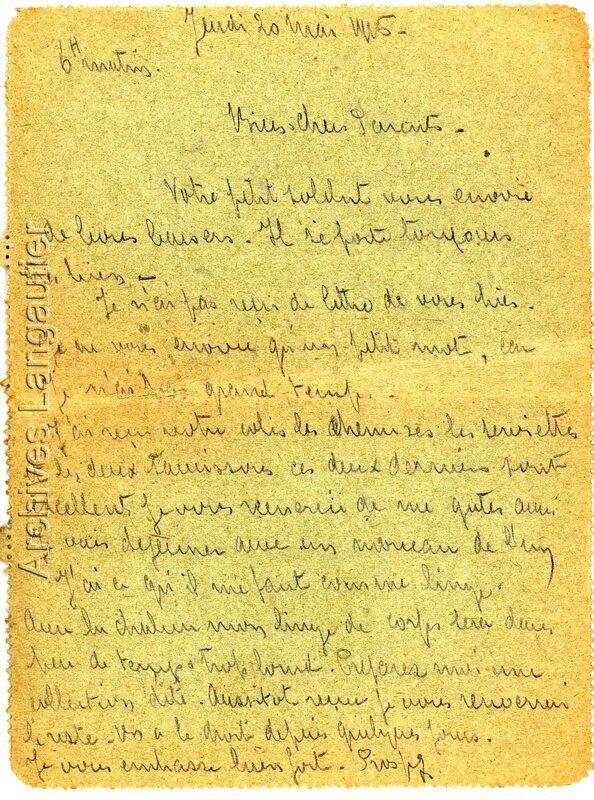 Jeudi 20 Mai 1915-
6H matin.
Biens chers Parents-
Votre petit soldat vous envoie
de bons baisers. Il se porte toujours
bien-
Je n'ai pas reçu de lettre de vous hier.
Je ne vous envoie qu'un petit mot, car
Je n'ai pas grand temps.
J'ai reçu votre colis les chemises les serviettes
les deux saucissons ces deux derniers sont
excellents Je vous remercie de me gater ainsi
Je vais dejeuner avec un morceau de l'un
J'ai ce qu'il me faut comme linge.
Avec la chaleur mon linge de corps sera dans
peu de temps trop lourd. Preparez moi une
collection d'été. Aussitot reçue Je vous renverrai
le reste. On a le droit depuis quelques jours.
Je vous embrasse bien fort-
Archives Langautier